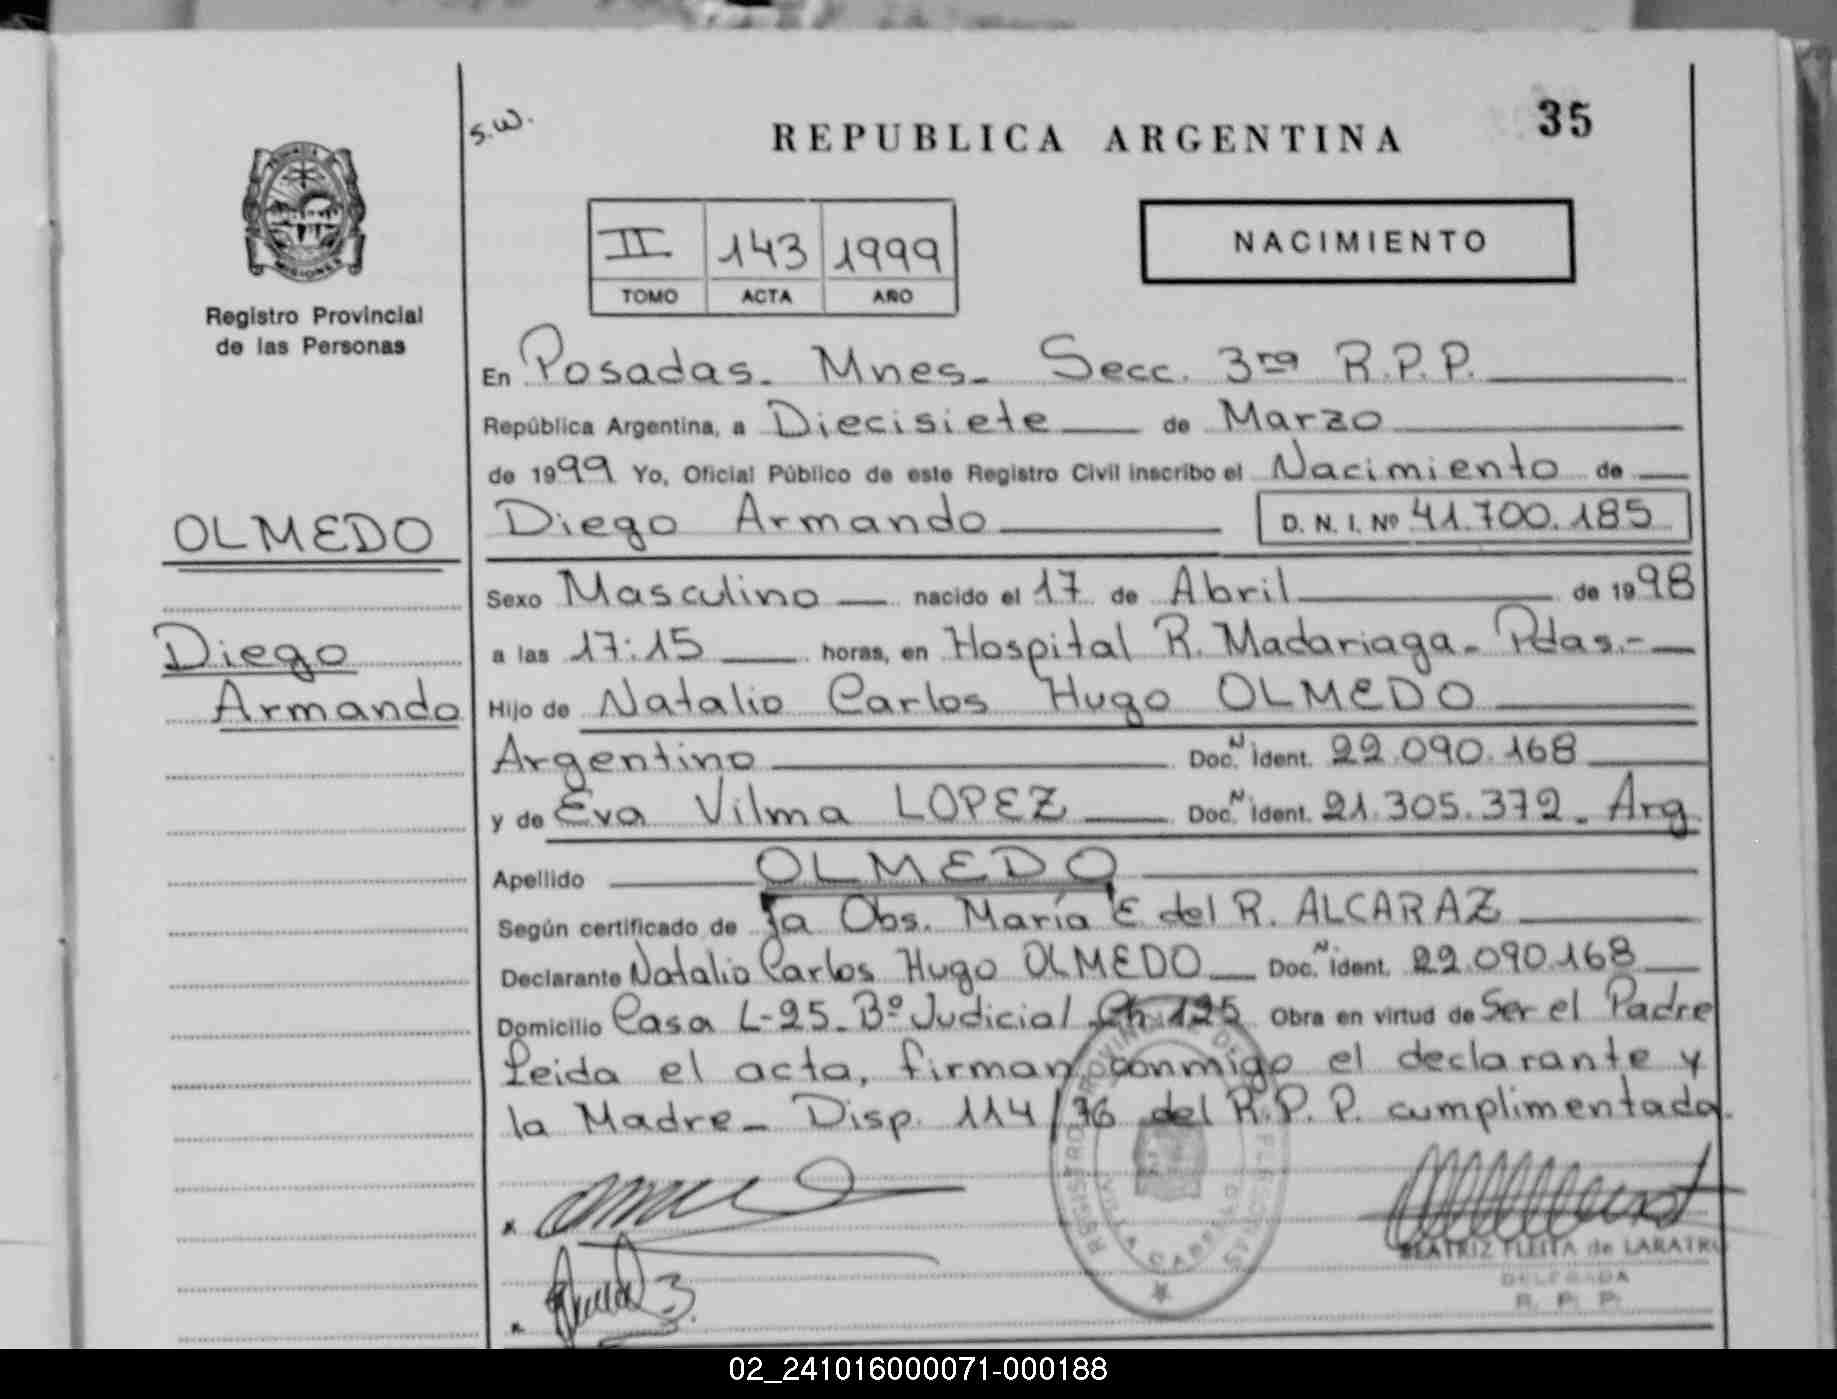 35
s.w.
REPUBLICA ARGENTINA
MISIONES
II 143 1999
TOMO ACTA AÑO
NACIMIENTO
Registro Provincial
de las Personas
En Posadas. Mnes. Secc. 3ra R.P.P.
República Argentina, a Diecisiete de Marzo
de 1999 Yo, Oficial Público de este Registro Civil inscribo el Nacimiento de
OLMEDO
Diego Armando D. N. I. Nº 41.700.185
Sexo Masculino nacido el 17 de Abril de 1998
Diego
a las 17:15 horas, en Hospital R. Madariaga. Pdas.-
Armando
Hijo de Natalio Carlos Hugo OLMEDO
Argentino Doc. N ident. 22.090.168
y de Eva Vilma LOPEZ Doc. N ident. 21.305.372. Arg
Apellido OLMEDO
Según certificado de la Obs. María E del R. ALCARAZ
Declarante Natalio Carlos Hugo OLMEDO Doc. N ident. 22.090.168
Domicilio Casa L-25. Bº Judicial Ch 125 Obra en virtud de Ser el Padre
Leida el acta, firman conmigo el declarante y
la Madre_ Disp. 114/96 del R.P.P. cumplimentada.
REGISTRO PROVINCIAL DE
BEATRIZ FLEITA de LARATRO
DELEGADA
R. P. P.
02_241016000071-000188